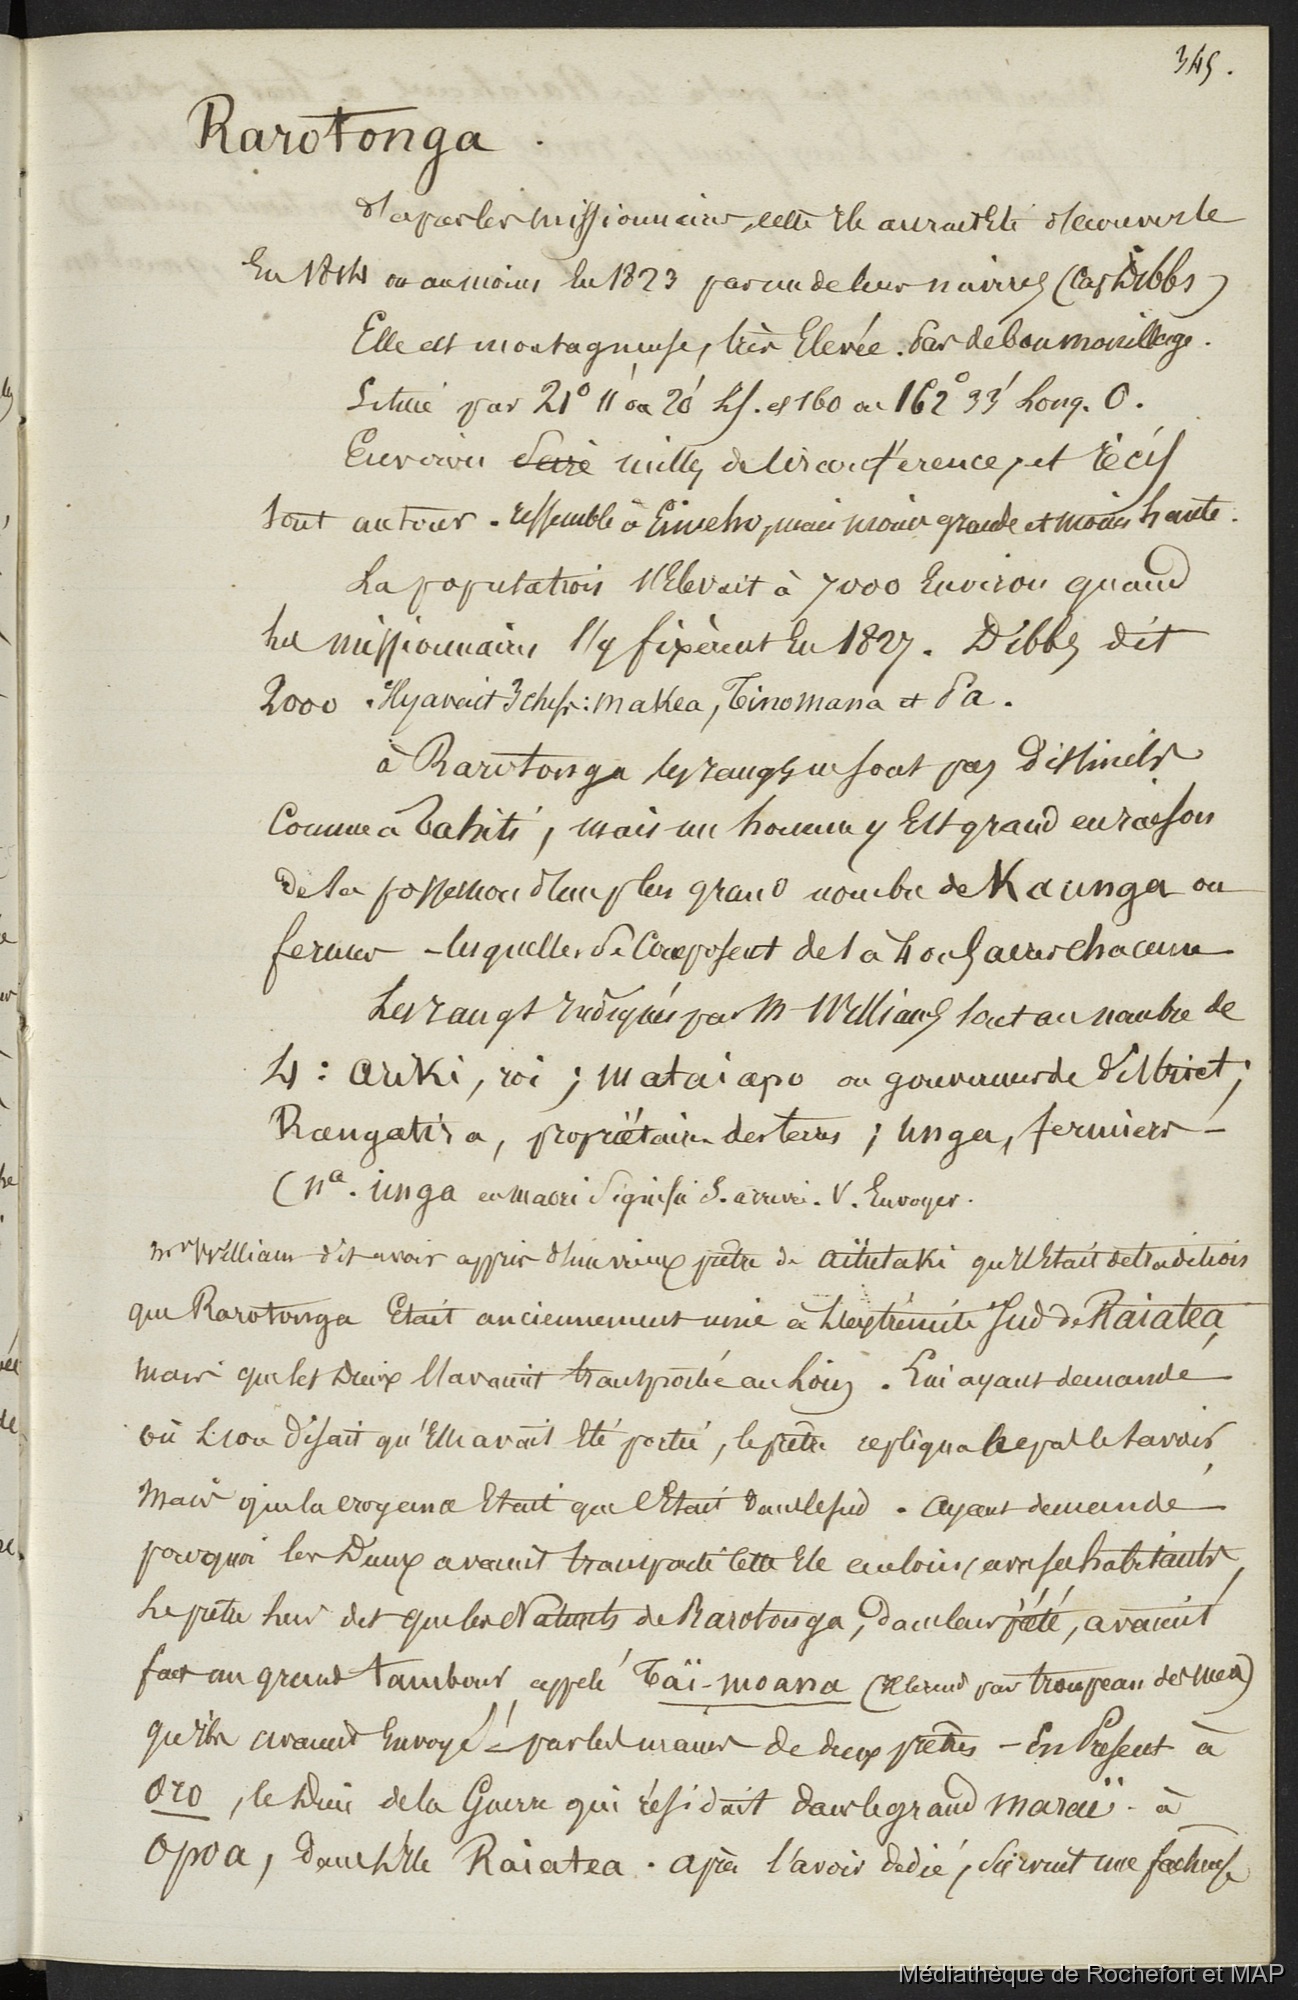 345.
Rarotonga.
d'après les missionnaires, cette île aurait été découverte
en 1814 ou au moins en 1823 par un de leurs navires (Cap Dibbs)
Elle est montagneuse, très élevée. Pas de bon mouillage.
Située par 21° 11' ou 20' LS. et 160 ou 162° 33' Long. O.
Environ milles de circonférence, et récif
tout autour. ressemble à Eimeho, mais moins grande et moins haute.
La population s'élevait à 7000 environ quand
les missionnaires s'y fixèrent en 1827. Dibbs dit
2000. Il y avait 3 chefs: Makea, Tinomana et Pa.
à Rarotonga les rangs ne sont pas distincts
comme à Tahiti, mais un homme y est grand en raison
de la possession d'un plus grand nombre de Kaunga ou
fermes - lesquelles se composent de 1 à 4 ou 5 acres chacune
Les rangs indiqués par M Williams sont au nombre de
4: Ariki, roi; mataiapo ou gouverneurs de district;
Rangatira, propriétaires des terres; Unga, fermiers -
(Na. unga en maori signifie S. arrivé. V. Envoyer.
Mr William dit avoir appris d'un vieux prêtre de Aïtutaki qu'il était de tradition
que Rarotonga était anciennement unie à l'extrémité Sud de Raiatea,
mais que les Dieux l'avaient transportée au loin. Lui ayant demandé
où l'on disait qu'elle avait été portée, le prêtre repliqua ne pas le savoir,
mais que la croyance était que c'était dans le sud. ayant demandé
pourquoi les Dieux avaient transporté cette île au loin, avec ses habitants,
le prêtre leur dit que les Naturels de Rarotonga, dans leur piété, avaient
fait un grand tambour, appelé Taï-moana (rendu par troupeau des mers)
qu'ils avaient envoyé - par les mains de deux prêtres - En Présent à
Oro, le Dieu de la Guerre qui résidait dans le grand maraë - à
Opoa, dans l'île Raiatea. après l'avoir dedié, survint une facheuse
Médiathèque de Rochefort et MAP